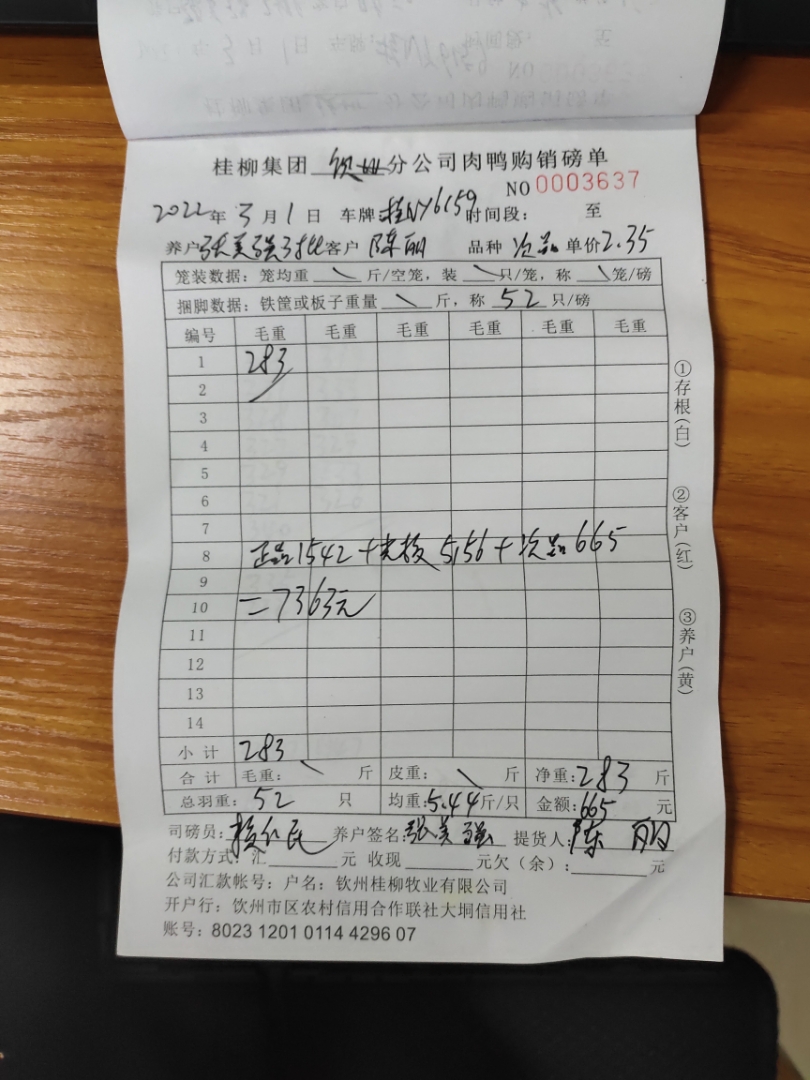 桂柳集团 钦州 分公司肉鸭购销磅单
NO 0003637
2022年3月1日 车牌 桂NY6159 时间段: 至
养户 张美强3批 客户 陈丽 品种 次品 单价 2.35
笼装数据: 笼均重 \ 斤/空笼, 装 \ 只/笼, 称 \ 笼/磅
捆脚数据: 铁筐或板子重量 \ 斤, 称 52 只/磅
编号 毛重 毛重 毛重 毛重 毛重 毛重
1 283
2
3
4
5
6
7
8 正品1542+光板5156+次品665
9
10 =7363元
11
12
13
14
小计 283
合计 毛重: \ 斤 皮重: \ 斤 净重: 283 斤
总羽重: 52 只 均重: 5.44 斤/只 金额: 665 元
司磅员: 养户签名: 张美强 提货人: 陈丽
付款方式: 汇 元 收现 元欠(余): 元
公司汇款帐号: 户名: 钦州桂柳牧业有限公司
开户行: 钦州市区农村信用合作联社大垌信用社
账号: 8023 1201 0114 4296 07
①存根(白)
②客户(红)
③养户(黄)